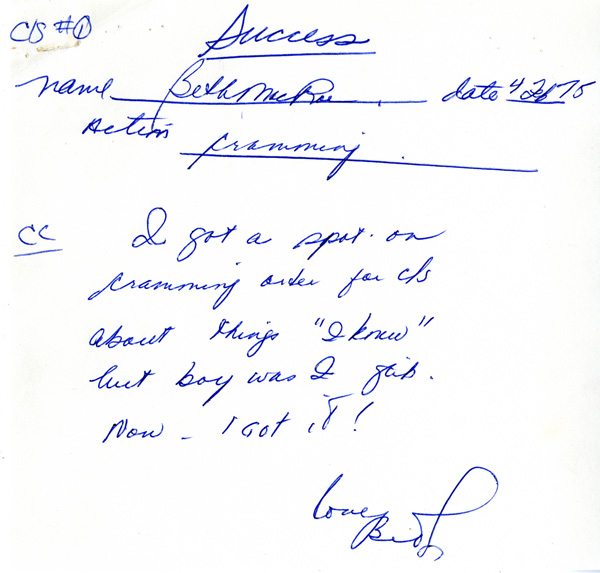 C/S #1
Success
Name Beth MacRae date 4 26 75
Action Cramming
CC I got a spot-on
cramming order for c/s
about things "I knew"
but boy was I glib.
Now - I got it!
Love